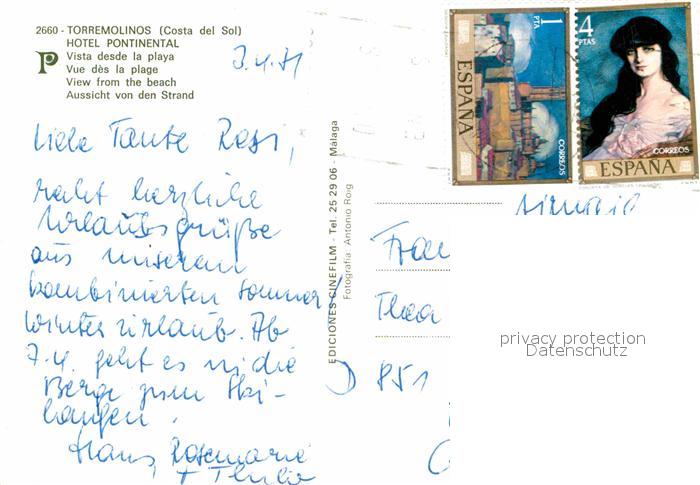 2660 - TORREMOLINOS (Costa del Sol)
HOTEL PONTINENTAL
Vista desde la playa
Vue dès la plage
View from the beach
Aussicht von den Strand
3.4.71
Liebe Tante Rosi,
recht herzliche
Urlaubsgrüße
aus unserem
kombinierten Sommer/
Winterurlaub. Ab
7.4. geht es in die
Berge zum Ski-
laufen.
Hans, Rosemarie
+
EDICIONES CINEFILM - Tel. 25 29 06 - Málaga
Fotografía: Antonio Roig
1
PTA
ESPAÑA
CORREOS
4
PTAS
CORREOS
ESPAÑA
Frau
Thea
D 851
privacy protection
Datenschutz